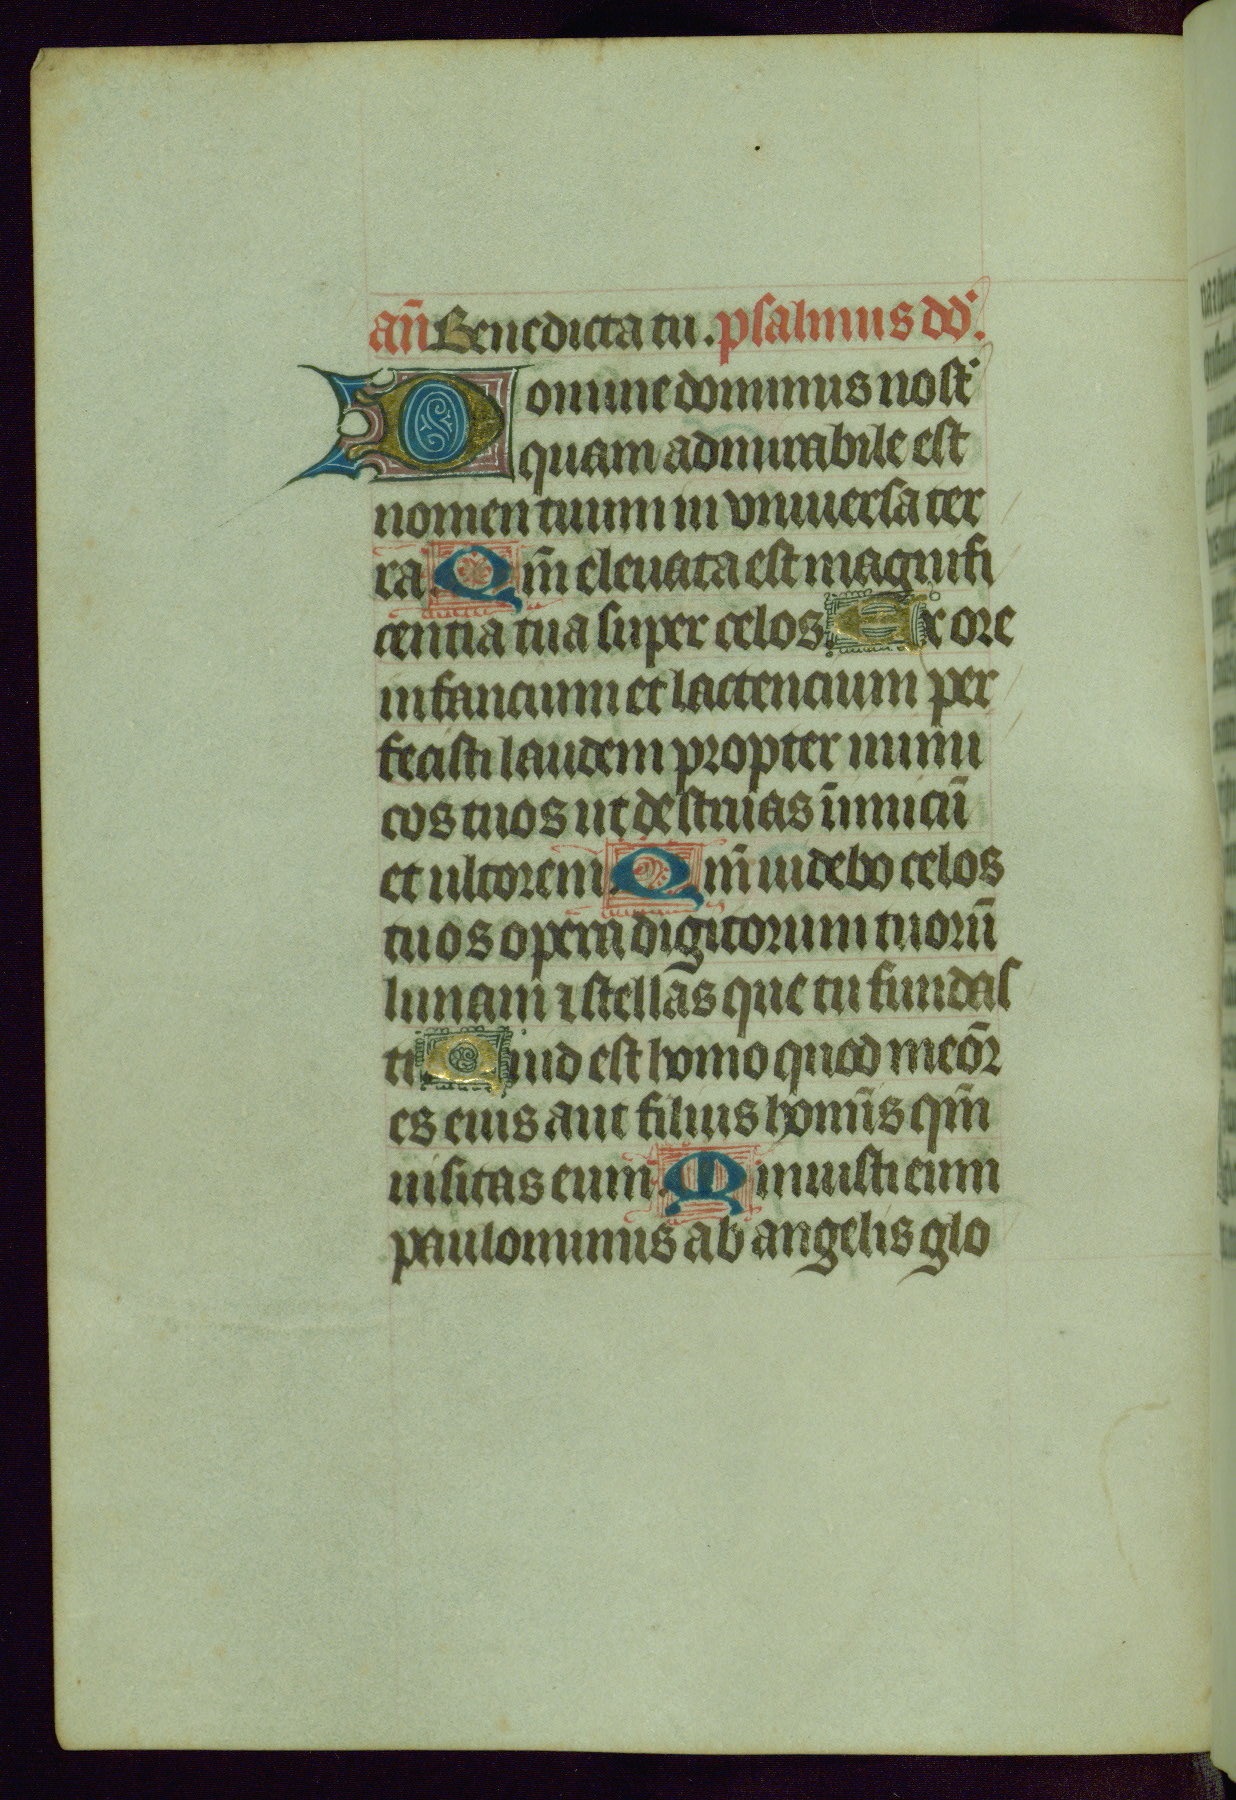 an̄ Benedicta tu. psalmus dd̾.
Domine dominus nost̾
quam admirabile est
nomen tuum in vniuersa ter
ra. Qm̄ eleuata est magnifi
centia tua super celos. Ex ore
infancium et lactencium per
fecisti laudem propter inimi
cos tuos ut destruas inimicū
et ultorem. Qm̄ uidebo celos
tuos opera digitorum tuorū
lunam ⁊ stellas que tu fundas
ti. Quid est homo quod meōr
es eius aut filius homīs qm̄
uisitas eum. Minuisti eum
paulominus ab angelis glo